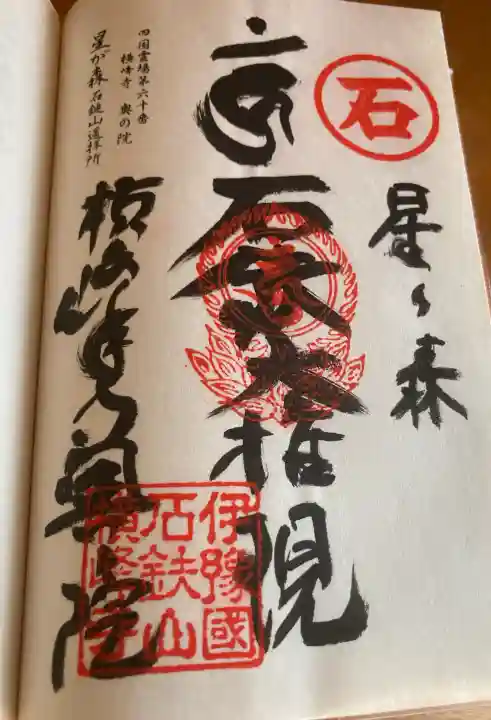 石
星ヶ森
石鈇大権現
伊豫國
石鈇山
横峰寺
横峰寺奥院
四国霊場第六十番
横峰寺 奥の院
星が森石鎚山遥拝所